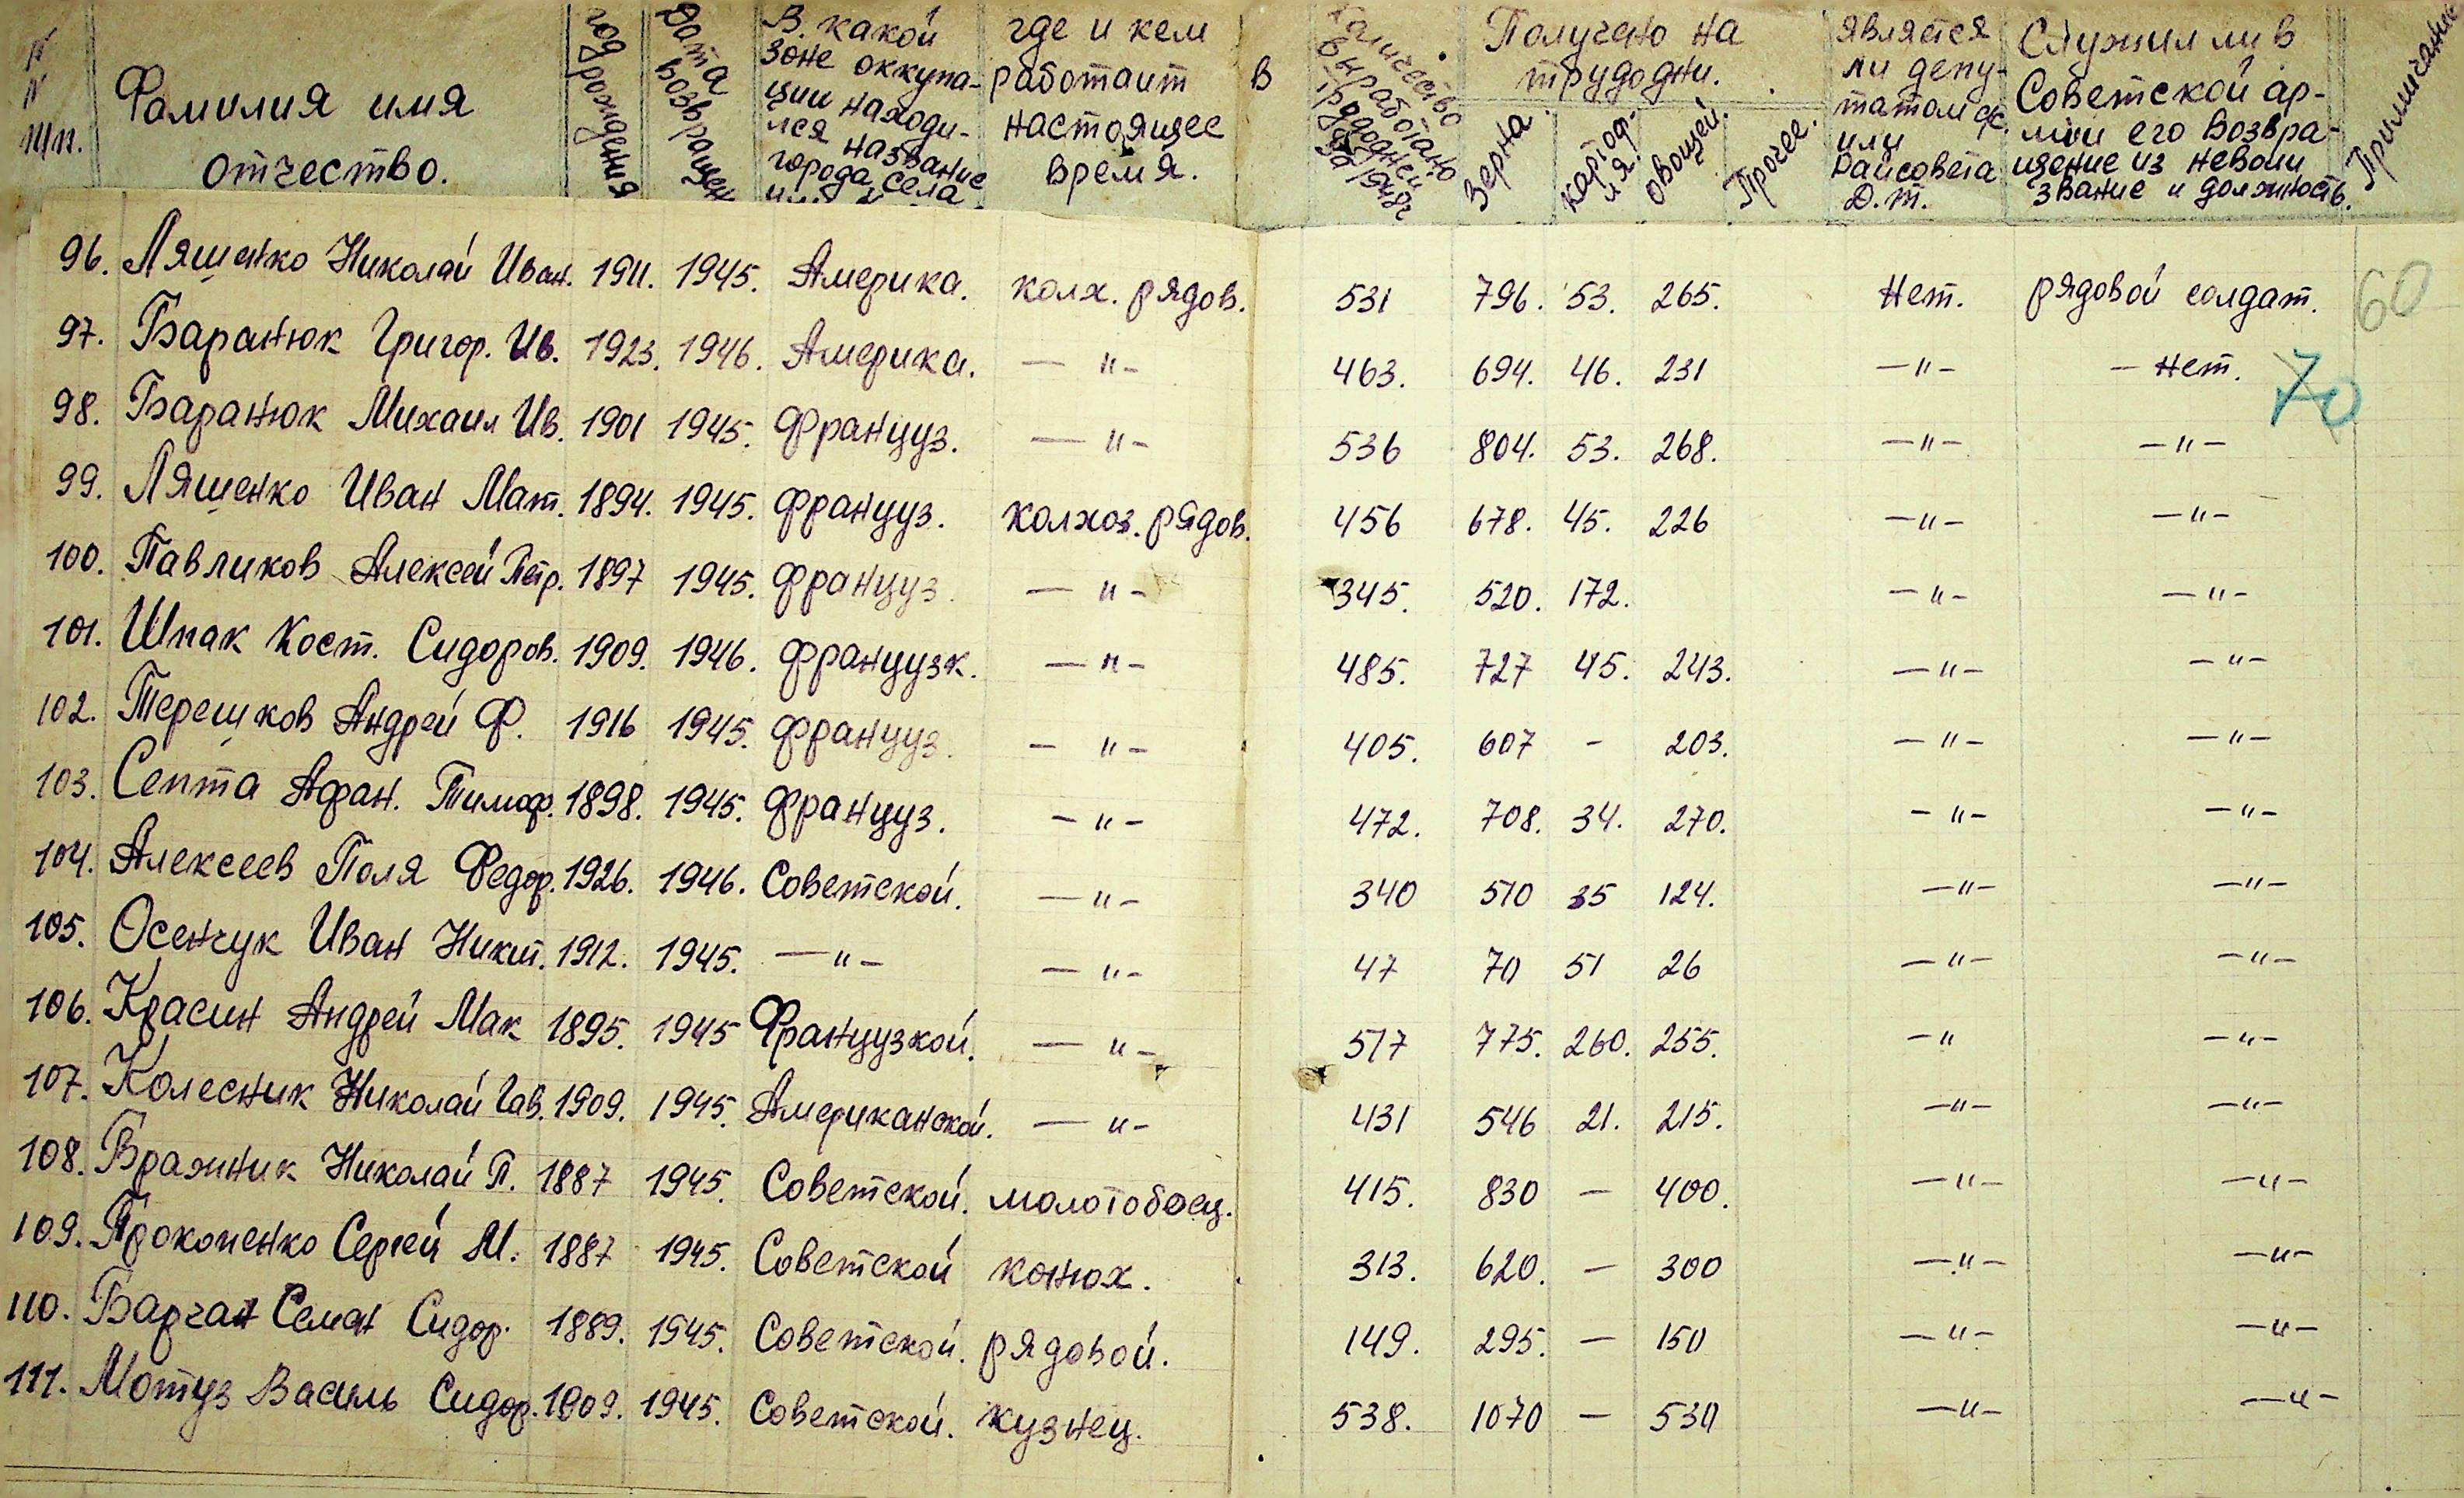 №№ п/п.
Фамилия имя отчество.
год рождения
Дата возвращен
В какой зоне оккупации находился название города, села
где и кем работаит в настоящее время.
Количество выработано трудодней за 1948г
Получено на трудодни.
Зерна
картофля.
овощей.
Прочее.
Является ли депутатом с/с. или Райсовета Д.т.
Служил ли в Советской армии его возвращение из неволи звание и должность.
Примичание
96. Ляшенко Николай Иван. 1911. 1945. Америка. колх. рядов. 531 796. 53. 265. Нет. рядовой солдат. 60
97. Баранюк Григор. Ив. 1923. 1946. Америка. — " - 463. 694. 46. 231 — " - - нет. 70
98. Баранюк Михаил Ив. 1901 1945. Француз. — " - 536 804. 53. 268. — " - — " -
99. Ляшенко Иван Мат. 1894. 1945. Француз. колхоз. рядов. 456 678. 45. 226 — " - — " -
100. Павликов Алексей Петр. 1897 1945. Француз. — " - 345. 520. 172. — " - — " -
101. Шпак Кост. Сидоров. 1909. 1946. Французк. — " - 485. 727 45. 243. — " - — " -
102. Терешков Андрей Ф. 1916 1945. Француз. — " - 405. 607 - 203. — " - — " -
103. Септа Афан. Тимоф. 1898. 1945. Француз. — " - 472. 708. 34. 270. — " - — " -
104. Алексеев Поля Федор. 1926. 1946. Советской. — " - 340 510 35 124. — " - — " -
105. Осенчук Иван Никит. 1912. 1945. — " - — " - 47 70 51 26 — " - — " -
106. Красин Андрей Мак 1895. 1945 Французкой. — " - 517 775. 260. 255. — " — " -
107. Колесник Николай Гав. 1909. 1945. Американской. — " - 431 546 21. 215. — " - — " -
108. Вражник Николай П. 1887 1945. Советской. молотобоец. 415. 830 — 400. — " - — " -
109. Прокопенко Сергей М. 1887 1945. Советской конюх. 313. 620. — 300 — " - — " -
110. Барган Семан Сидор. 1889. 1945. Советской. рядовой. 149. 295. — 150 — " - — " -
111. Мотуз Василь Сидор. 1909. 1945. Советской. кузнец. 538. 1070 — 530 — " - — " -